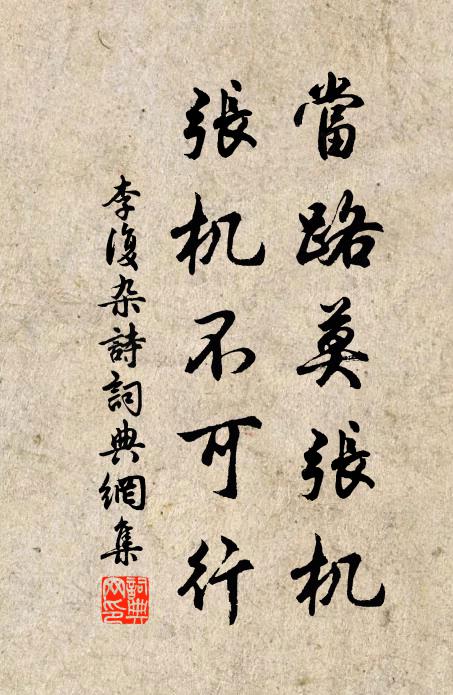 當路莫張机
張机不可行
李復杂詩詞典網集
詞典
网印